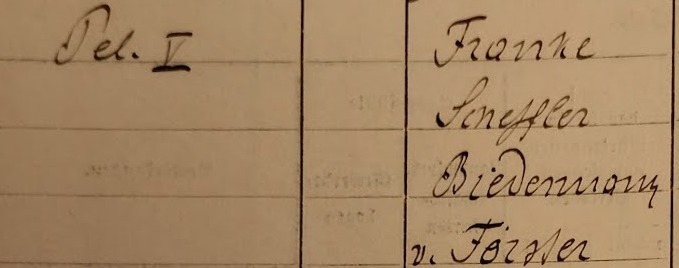 Pel. V
Franke
Scheffler
Biedermann
v. Förster